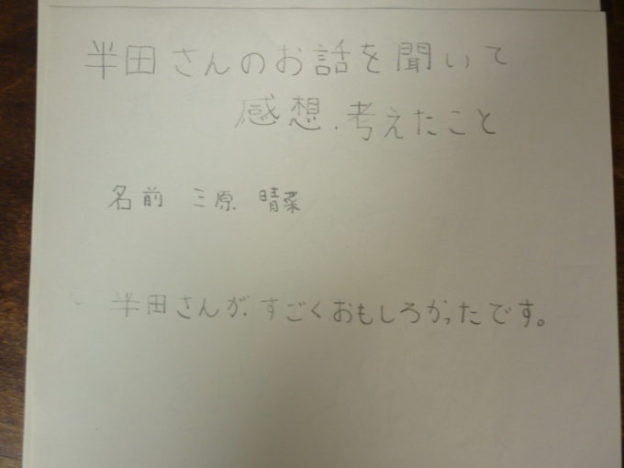 半田さんのお話を聞いて
感想.考えたこと
名前 三原 晴菜
半田さんが、すごくおもしろかったです。